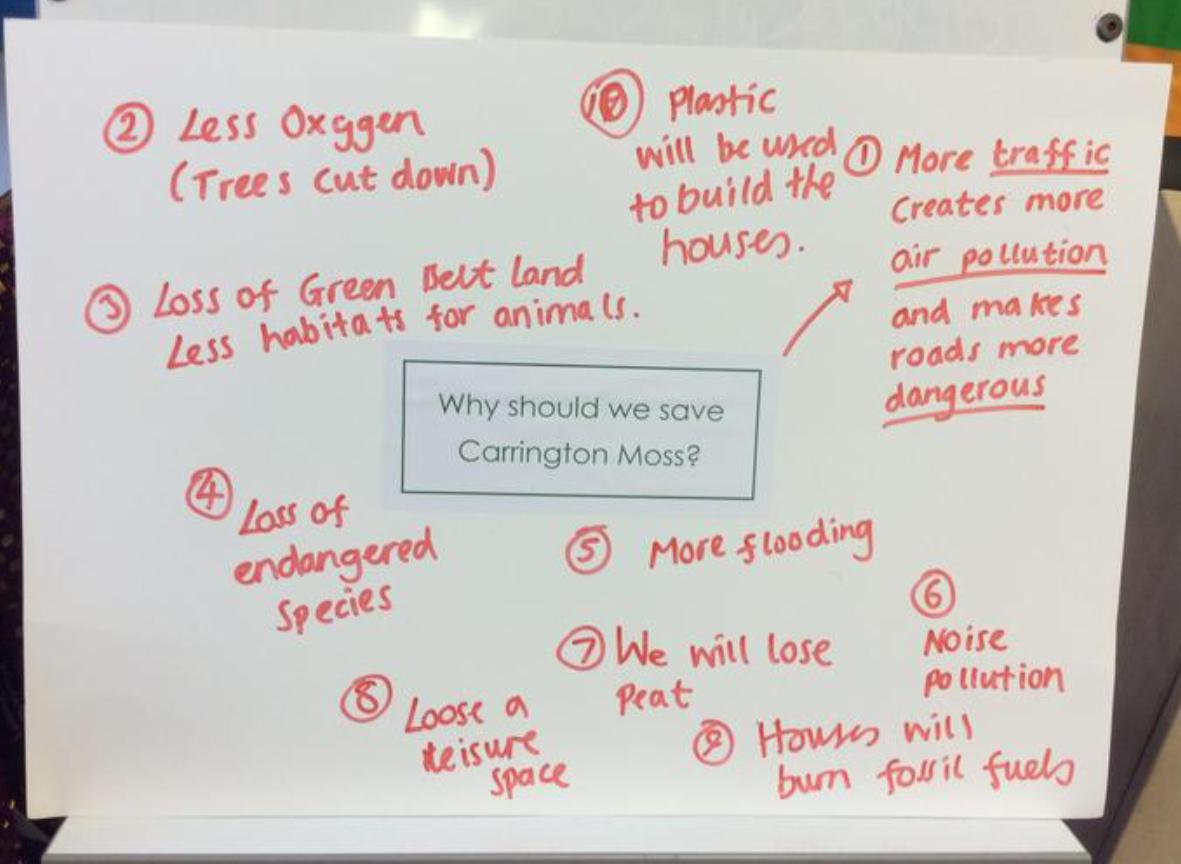 ② Less Oxygen
(Trees cut down)
⑩ Plastic
will be used
to build the
houses.
① More traffic
creates more
air pollution
and makes
roads more
dangerous
③ Loss of Green Belt land
Less habitats for animals.
Why should we save
Carrington Moss?
④ Loss of
endangered
species
⑤ More flooding
⑥
Noise
pollution
⑦ We will lose
peat
⑧ Loose a
leisure
space
⑨ Houses will
burn fossil fuels